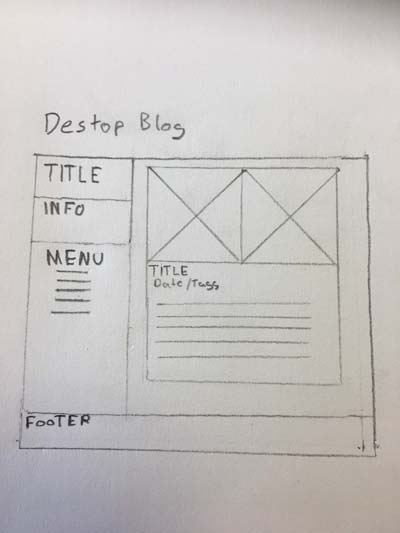 Destop Blog
TITLE
INFO
MENU
TITLE
Date/Tags
FooTER